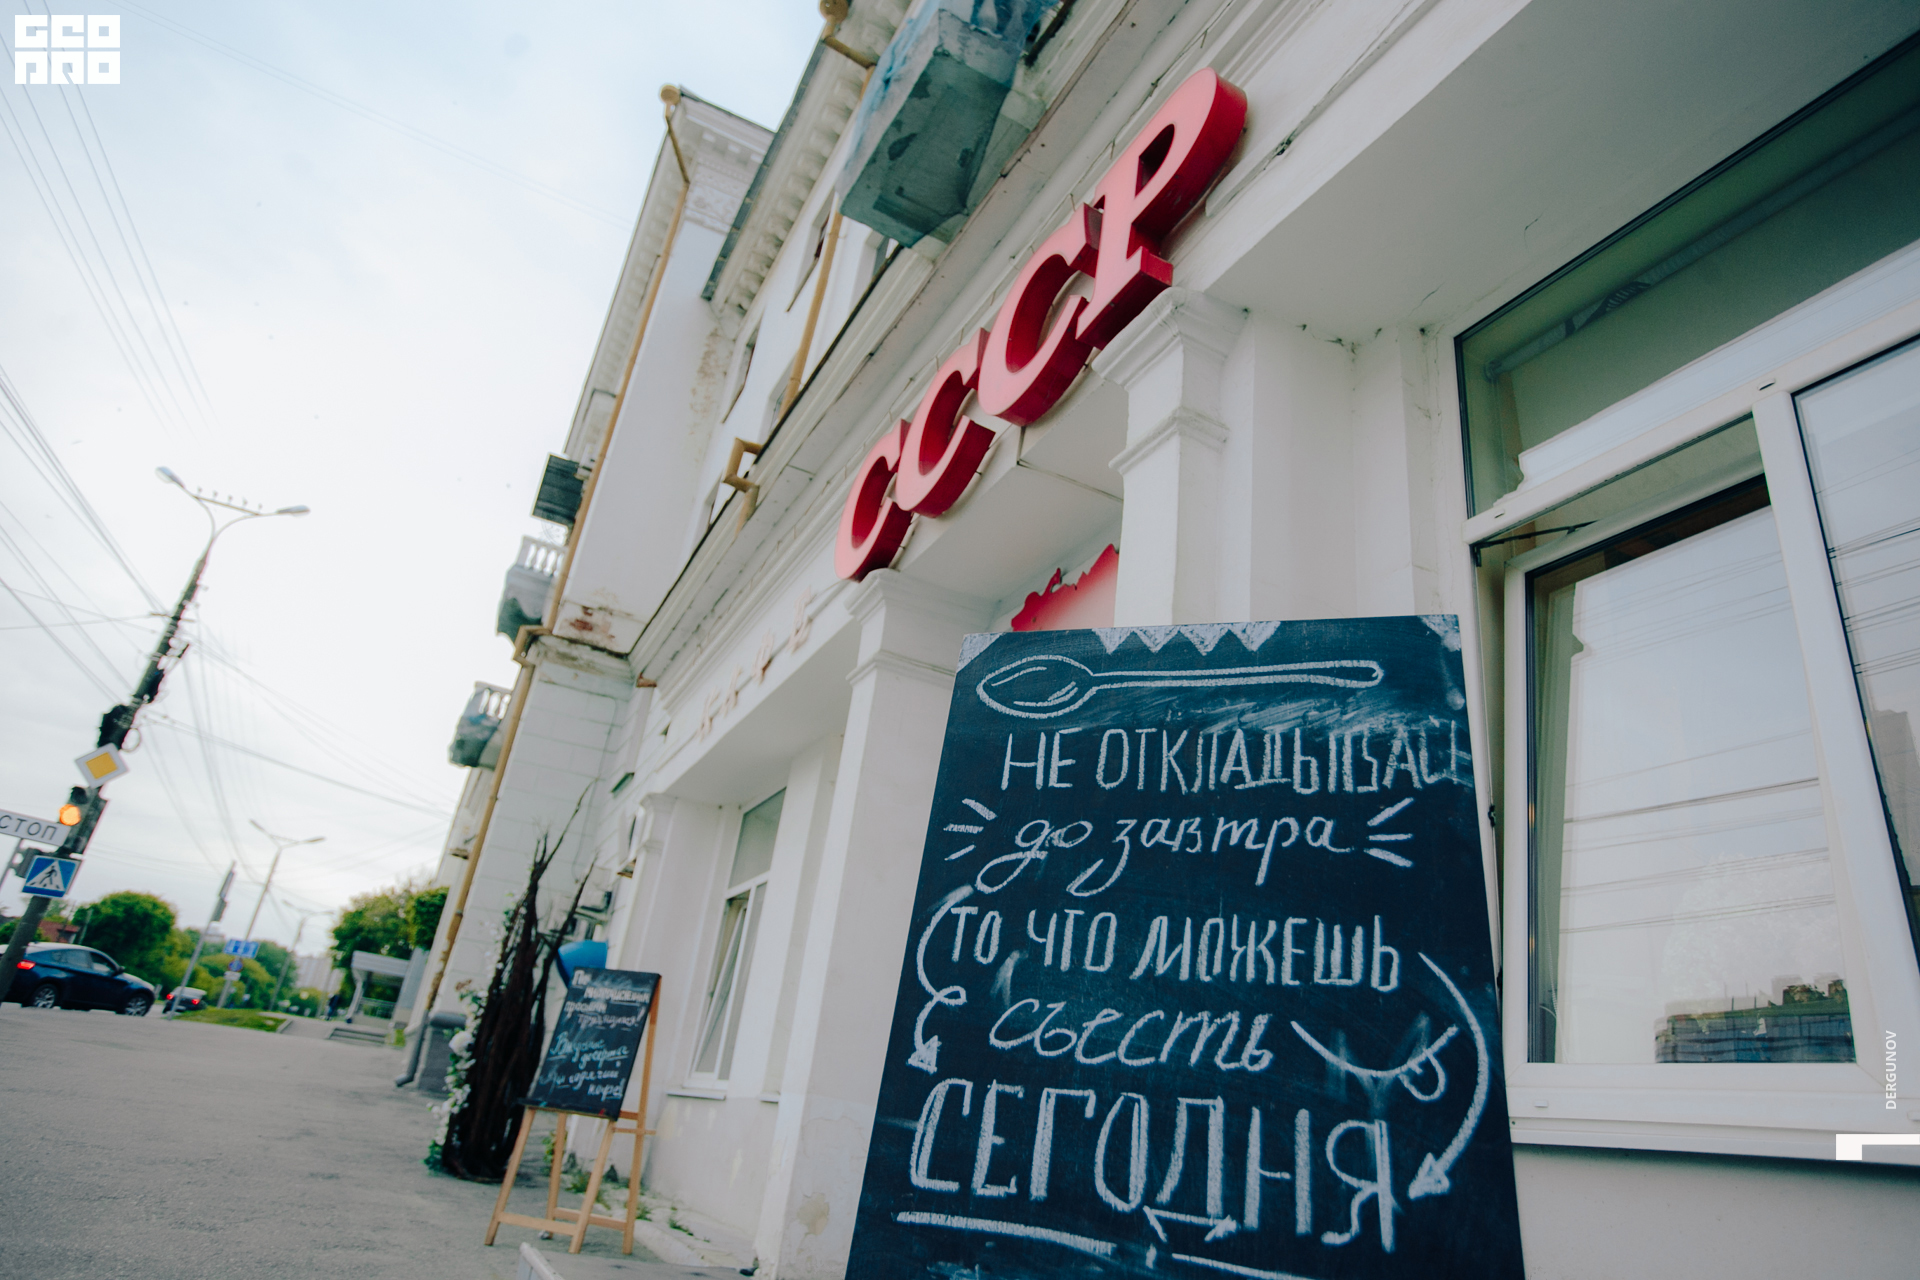 GEO
PRO
СССР
НЕ ОТКЛАДЫВАЙ
до завтра
ТО, ЧТО МОЖЕШЬ
съесть
СЕГОДНЯ
СТОП
вкусные
десерты
DERGUNOV